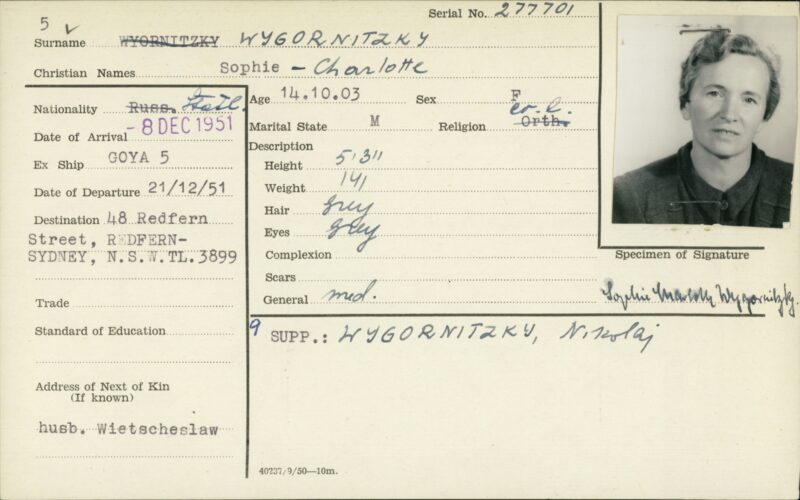 Serial No. 277701
5
Surname WYORNITZKY WYGORNITZKY
Christian Names Sophie - Charlotte
Nationality Russ. Statl.
Date of Arrival - 8 DEC 1951
Ex Ship GOYA 5
Date of Departure 21/12/51
Destination 48 Redfern
Street, REDFERN-
SYDNEY, N.S.W.TL.3899
Trade
Standard of Education
Address of Next of Kin
(If known)
husb. Wietscheslaw
Age 14.10.03 Sex F
Marital State M Religion Orth. ev. l.
Description
Height 5'3"
Weight 141
Hair Grey
Eyes Grey
Complexion
Scars
General med.
Specimen of Signature
Sophie Charlotte Wygornitzky.
9 SUPP.: WYGORNITZKY, Nikolaj
40237/9/50—10m.